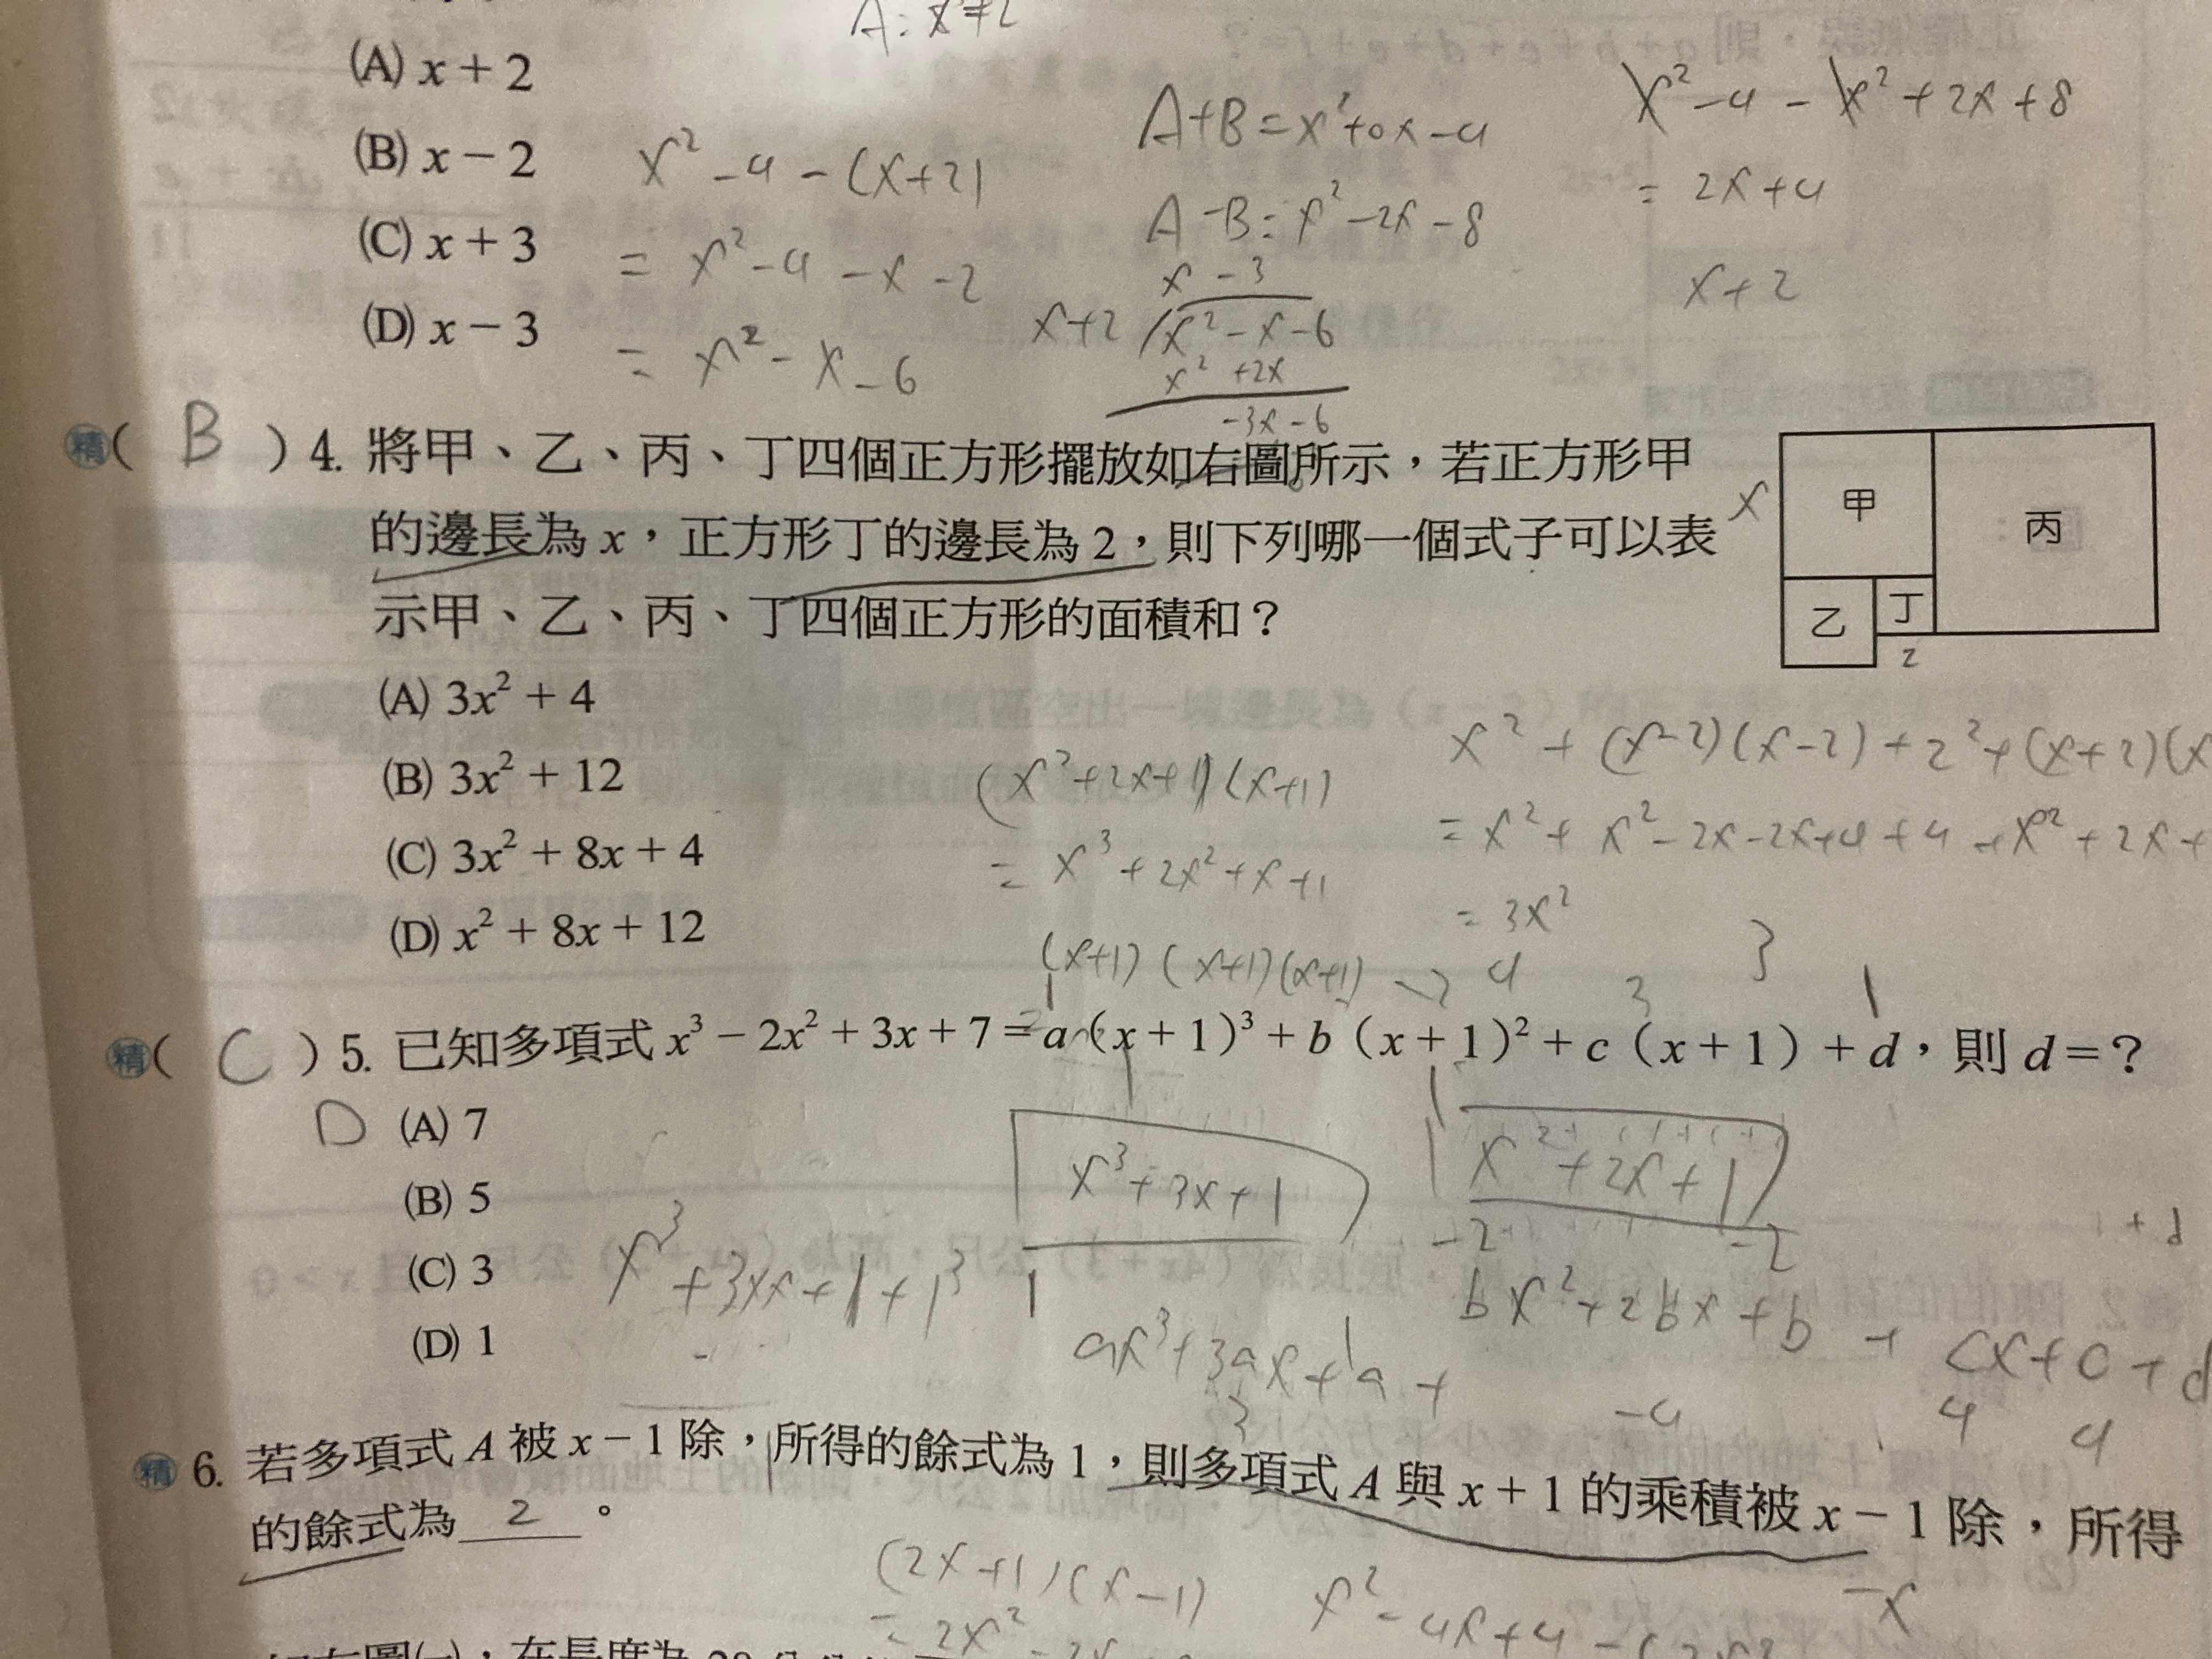 A: x+2
(A) x + 2
(B) x − 2
(C) x + 3
(D) x − 3
x² − 4 − (x+2)
= x² − 4 − x − 2
= x² − x − 6
A+B = x²+0x−4
A−B = x²−2x−8
x − 3
x+2 x² − x − 6
x² +2x
−3x − 6
x²−4 − x²+2x+8
= 2x+4
x+2
精( B ) 4. 將甲、乙、丙、丁四個正方形擺放如右圖所示，若正方形甲
的邊長為 x，正方形丁的邊長為 2，則下列哪一個式子可以表
示甲、乙、丙、丁四個正方形的面積和？
x
甲
丙
乙
丁
2
(A) 3x² + 4
(B) 3x² + 12
(C) 3x² + 8x + 4
(D) x² + 8x + 12
(x²+2x+1)(x+1)
= x³+2x²+x+1
(x+1)(x+1)(x+1)
x² + (x−2)(x−2) + 2² + (x+2)(x
= x² + x² − 2x − 2x + 4 + 4 + x² + 2x +
= 3x²
精( C ) 5. 已知多項式 x³ − 2x² + 3x + 7 = a (x + 1)³ + b (x + 1)² + c (x + 1) + d，則 d = ?
D
(A) 7
(B) 5
(C) 3
(D) 1
x³+3x+1
x²+2x+1
−2 −2
x³+3xx+1+1³
ax³+3ax+a+
bx²+2bx+b + cx+c+d
−4 4 4
精 6. 若多項式 A 被 x − 1 除，所得的餘式為 1，則多項式 A 與 x + 1 的乘積被 x − 1 除，所得
的餘式為 2 。
(2x+1)(x−1)
= 2x²
x² − 4x + 4 −
−x